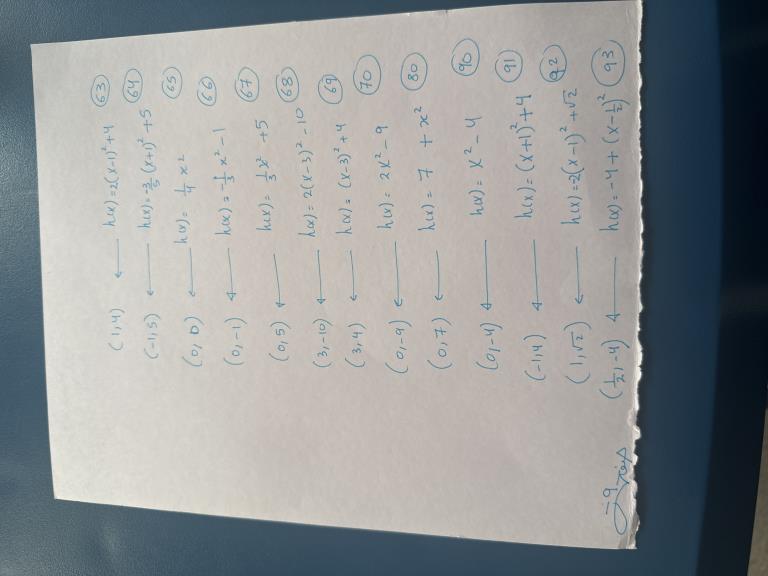 (1,4) ← h(x)=2(x-1)²+4 63
(-1,5) ← h(x)=-3/5(x+1)²+5 64
(0,0) ← h(x)=1/4 x² 65
(0,-1) ← h(x)=-1/3 x²-1 66
(0,5) ← h(x)=1/3 x²+5 67
(3,-10) ← h(x)=2(x-3)²-10 68
(3,4) ← h(x)=(x-3)²+4 69
(0,-9) ← h(x)=2x²-9 70
(0,7) ← h(x)=7+x² 80
(0,-4) ← h(x)=x²-4 90
(-1,4) ← h(x)=(x+1)²+4 91
(1,√2) ← h(x)=2(x-1)²+√2 92
(1/2,-4) ← h(x)=-4+(x-1/2)² 93